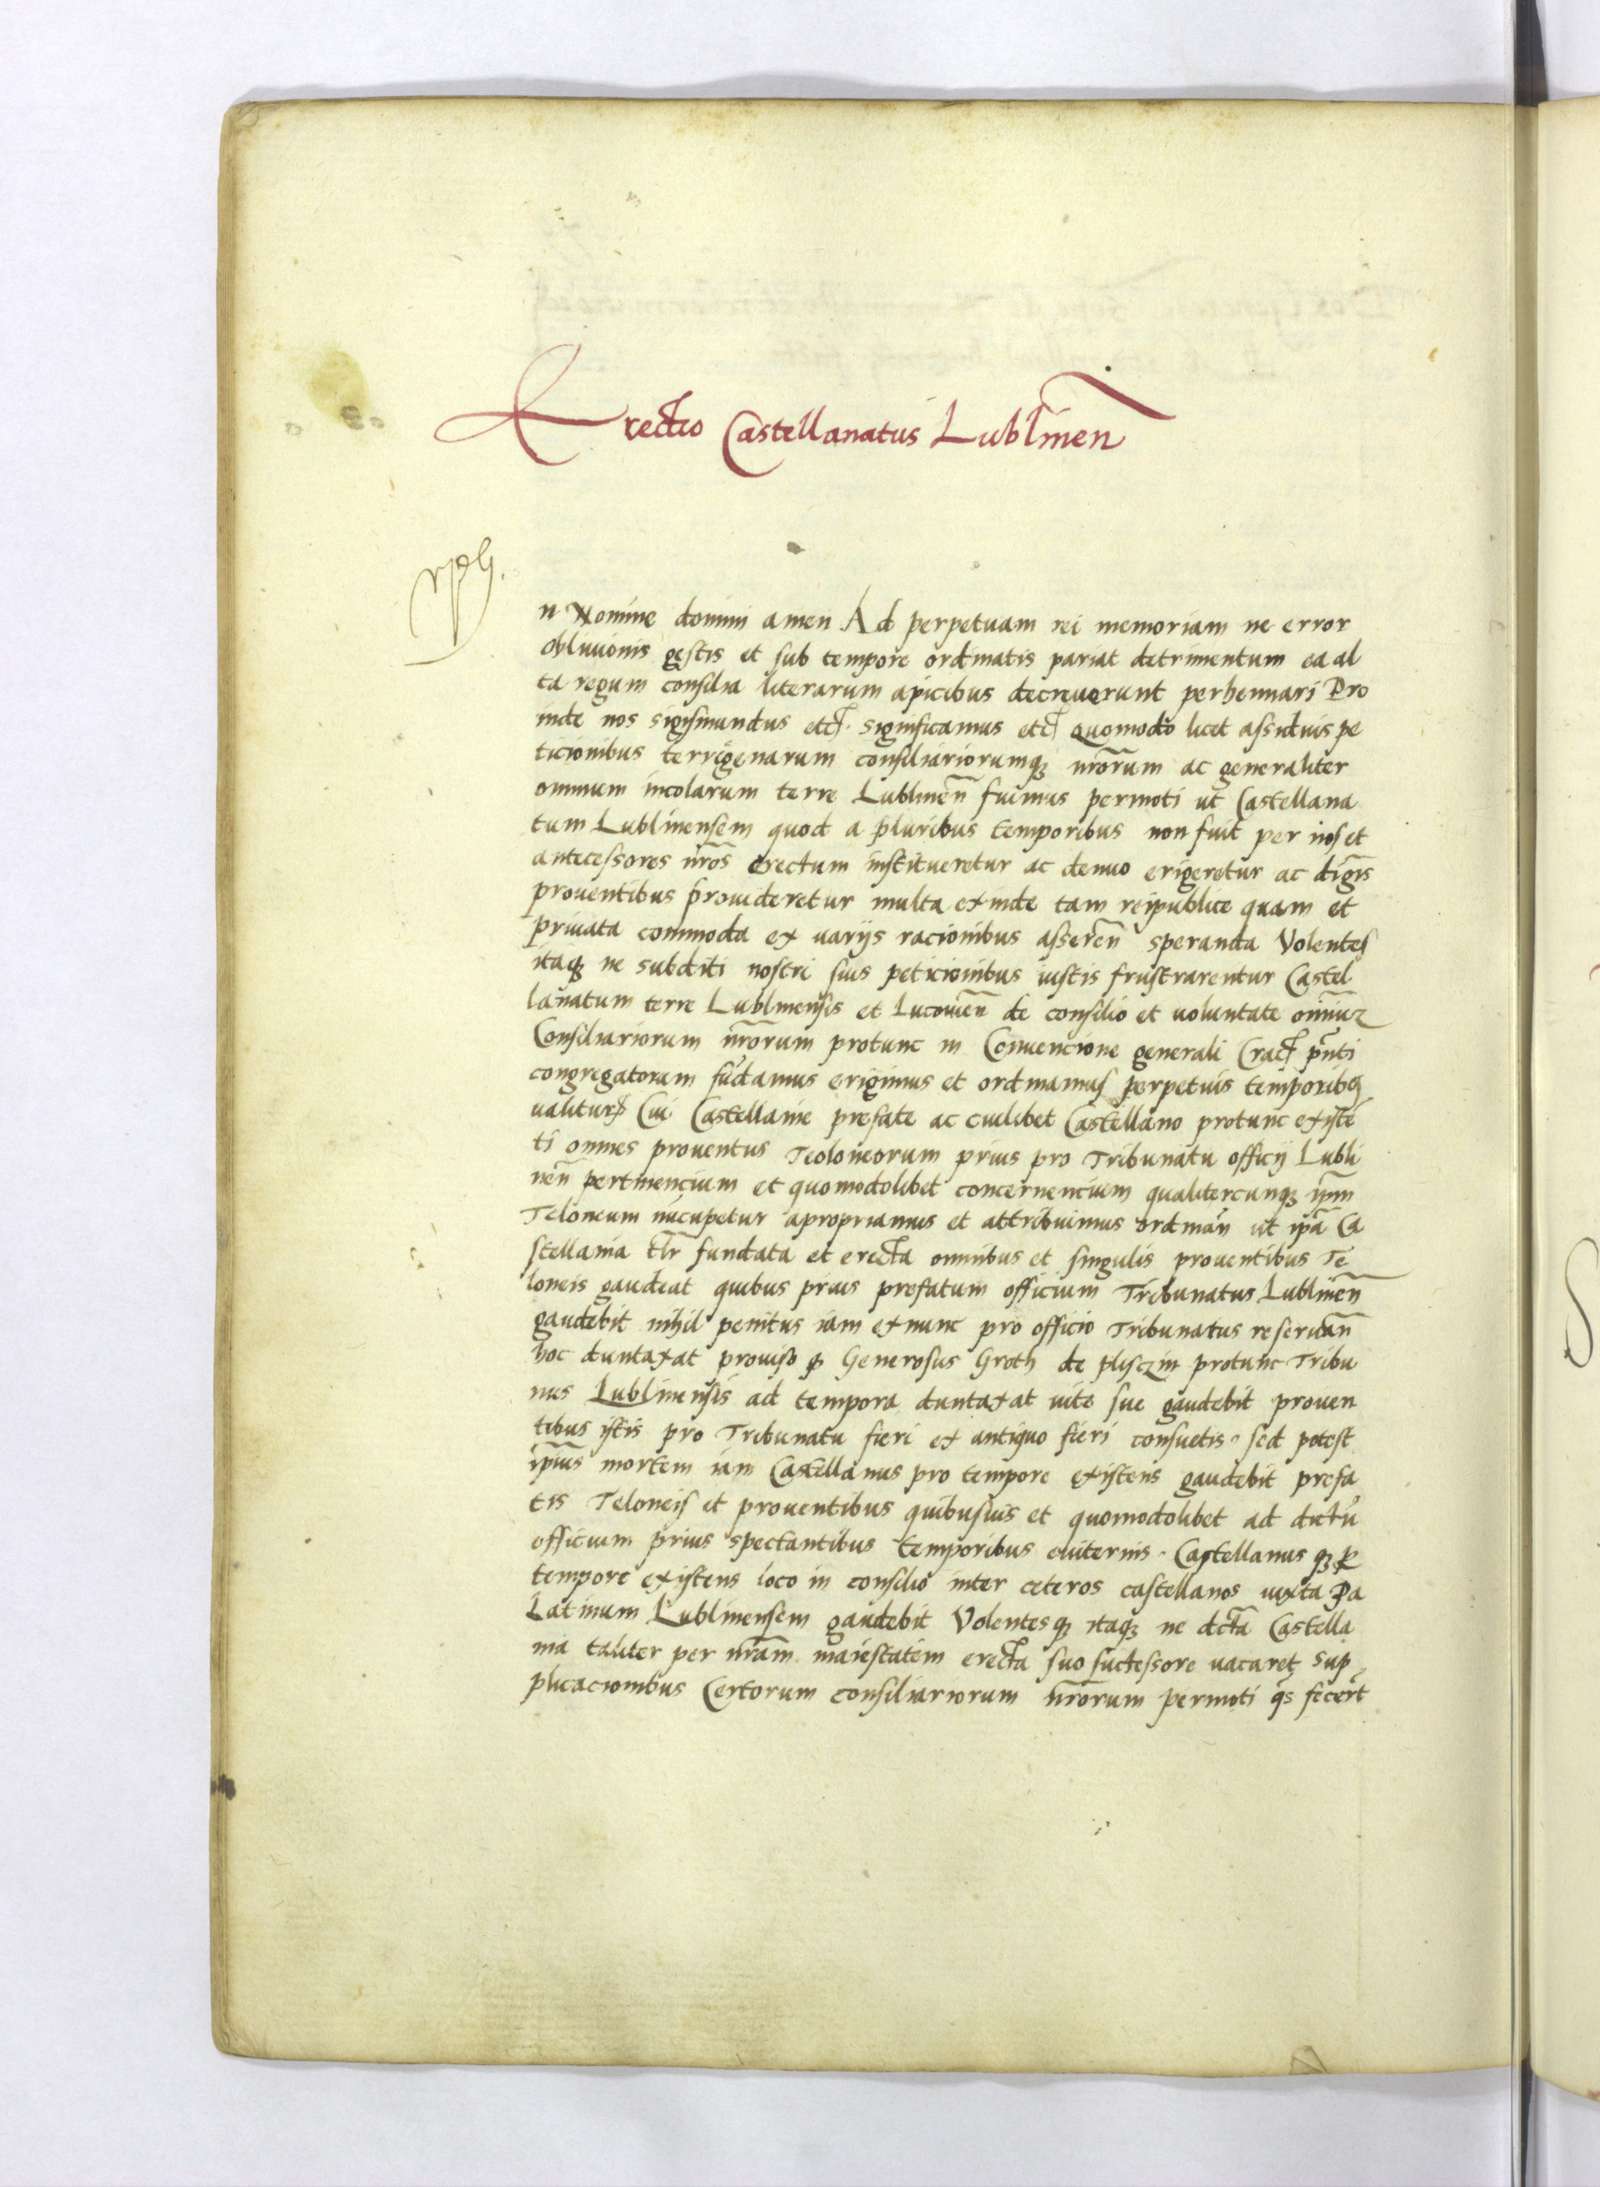 Erectio Castellanatus Lublinen̄
n Nomine domini amen Ad perpetuam rei memoriam ne error
oblivionis gestis et sub tempore ordinatis pariat detrimentum ea al
ta regum consilia literarum apicibus decreverunt perhennari Pro
inde nos sigismundus etc̄ significamus etc̄ quomodo licet assiduis pe
ticionibus terrigenarum consiliariorumq̧ nr̄orum ac generaliter
omnium incolarum terre Lublinen̄ fuimus permoti ut Castellana
tum Lublinensem quod a pluribus temporibus non fuit per nos et
antecessores nr̄os erectum institueretur ac denuo erigeretur ac dignis
proventibus provideretur multa exinde tam reipublice quam et
privata commoda ex varijs racionibus asseren̄ speranda Volentes
itaq̧ ne subditi nostri suis peticionibus iustis frustrarentur Castel
lanatum terre Lublinensis et Lucovien̄ de consilio et voluntate om̄niuꝫ
Consiliariorum nr̄orum protunc in Convencione generali Crac̄ pn̄ti
congregatorum fūdamus erigimus et ordinamus perpetuis temporibꝫ
valitur̄ Cui Castellanie prefate ac cuilibet Castellano protunc existē
ti omnes proventus Teoloneorum prius pro Tribunatu officij Lubli
nen̄ pertinencium et quomodolibet concernencium qualitercunq̧ ip̄m
Teloneum nūcupetur apropriamus et attribuimus ordinan̄ ut ip̄a Ca
stellania tlr̄ fundata et erecta omnibus et singulis proventibus Te
loneis gaudeat quibus prius prefatum officium Tribunatus Lublinen̄
gaudebit nihil penitus iam exnunc pro officio Tribunatus reservan̄
hoc duntaxat proviso ꝙ Generosus Groth de pliscꝫin protunc Tribu
nus Lublinensis ad tempora duntaxat vite sue gaudebit proven
tibus istis pro Tribunatu fieri ex antiquo fieri consuetis. sed potest
ip̄ius mortem iam Castellanus pro tempore existens gaudebit prefa
tis Teloneis et proventibus quibusvis et quomodolibet ad dictū
officium prius spectantibus temporibus eviternis. Castellanus q̧ ꝓ
tempore existens loco in consilio inter ceteros castellanos iuxta Pa
Latinum Lublinensem gaudebit Volentesq̧ itaq̧ ne dct̄a Castella
nia taliter per nr̄am maiestatem erecta suo successore vacaret sup
plicacionibus Certorum consiliariorum nr̄orum permoti qs fecert̄